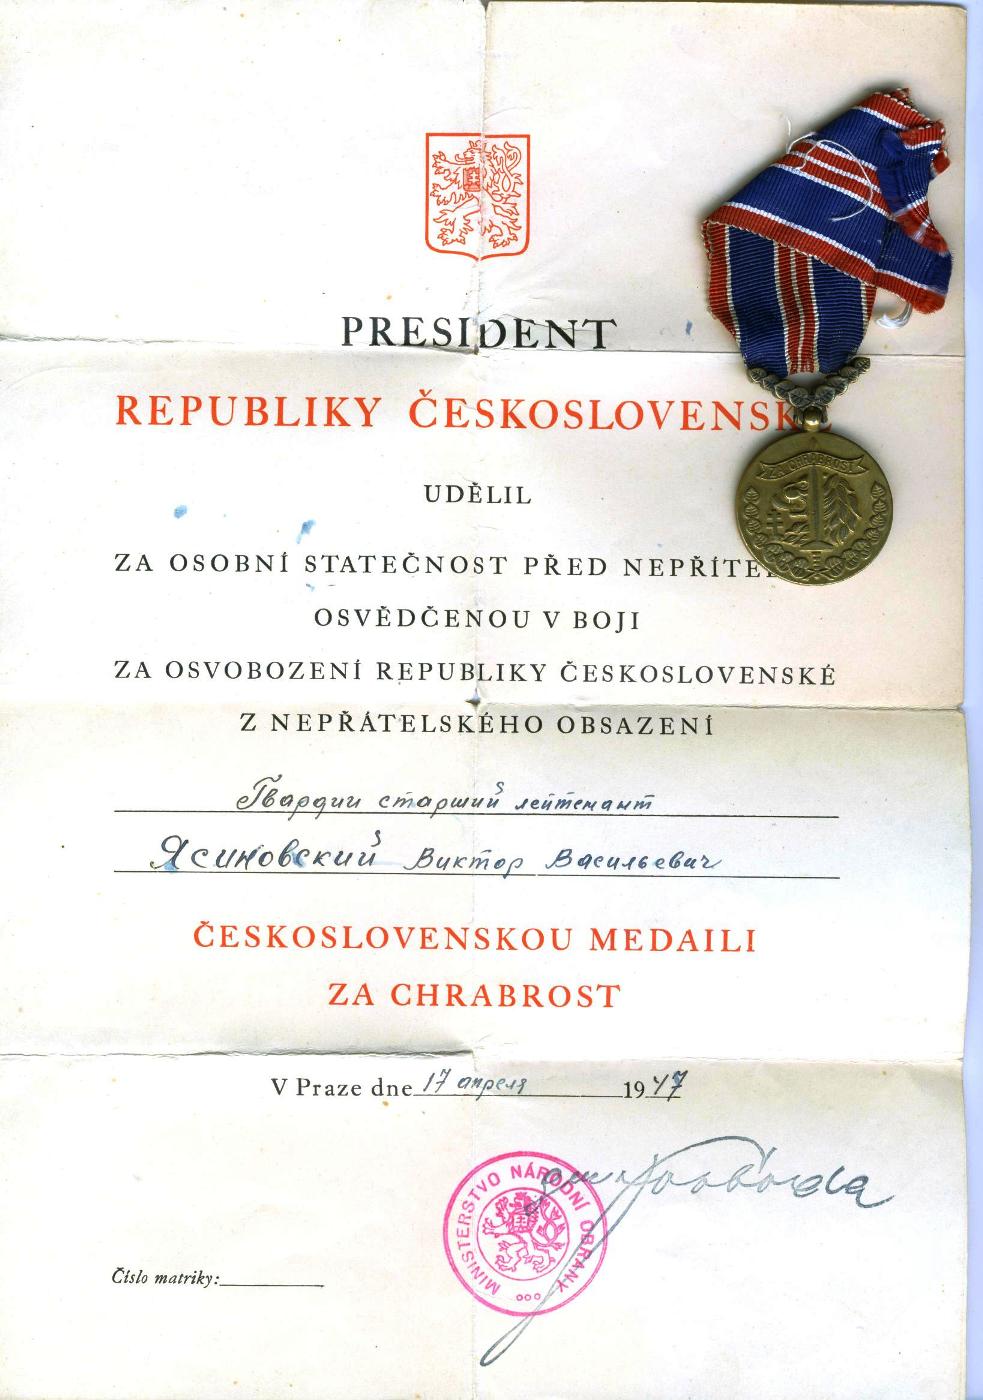 PRESIDENT
REPUBLIKY ČESKOSLOVENSKÉ
UDĚLIL
ZA OSOBNÍ STATEČNOST PŘED NEPŘÍTE
OSVĚDČENOU V BOJI
ZA OSVOBOZENÍ REPUBLIKY ČESKOSLOVENSKÉ
Z NEPŘÁTELSKÉHO OBSAZENÍ
Гвардии старший лейтенант
Ясиновский Виктор Васильевич
ČESKOSLOVENSKOU MEDAILI
ZA CHRABROST
V Praze dne 17 апреля 1947
MINISTERSTVO NÁRODNÍ OBRANY
Svoboda
Číslo matriky:
ZA CHRABROST